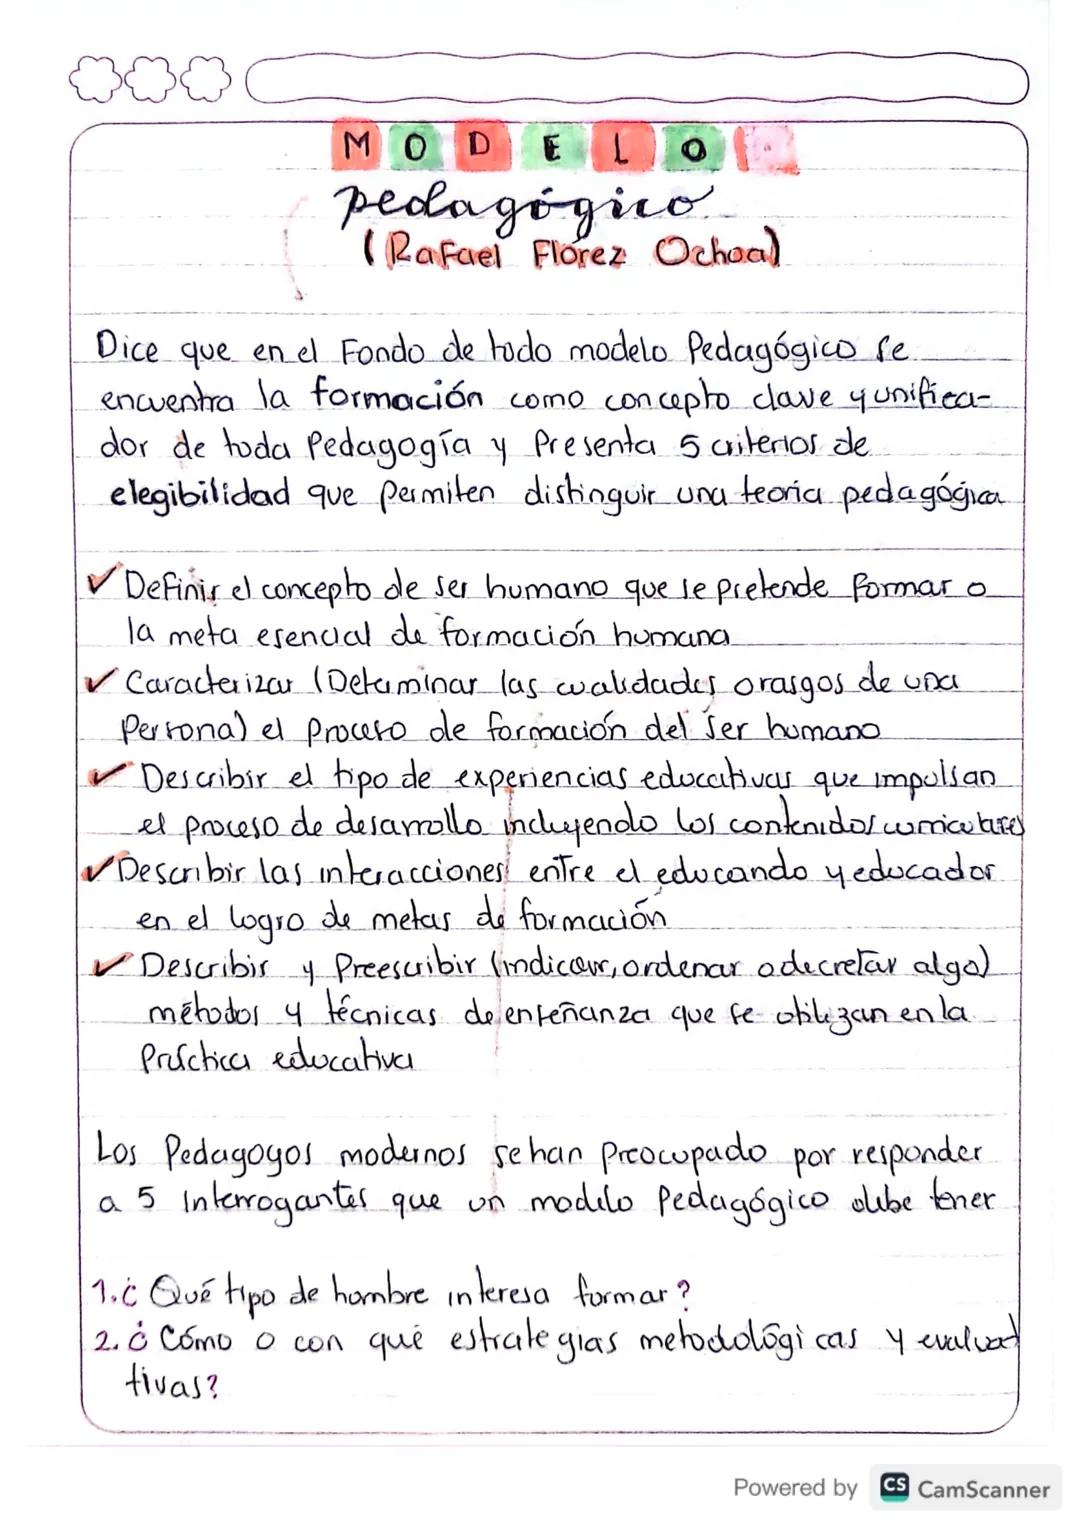 MODELO
pedagógico
(Rafael Flórez Ochoa)
Dice que en el Fondo de todo modelo Pedagógico se
encuentra la formación como concepto clave y unifica-
dor de toda Pedagogía y Presenta 5 criterios de
elegibilidad que permiten distinguir una teoria pedagógica
✓ Definir el concepto de ser humano que se pretende formar o
la meta esencial de formación humana
✓ Caracterizar (Determinar las cualidades o rasgos de una
Persona) el proceso de formación del ser humano
✓ Describir el tipo de experiencias educativas que impulsan
el proceso de desarrollo incluyendo los contenidos curriculares
✓ Describir las interacciones entre el educando y educador
en el logro de metas de formación
✓ Describir y Preescribir (indicar, ordenar o decretar algo)
métodos y técnicas de enseñanza que se utilizan en la
Práctica educativa
Los Pedagogos modernos se han Preocupado por responder
a 5 Interrogantes que un modelo Pedagógico debe tener
1. ¿Qué tipo de hombre interesa formar?
2. ¿Cómo o con qué estrategias metodológicas y evalua
tivas?
Powered by CS CamScanner